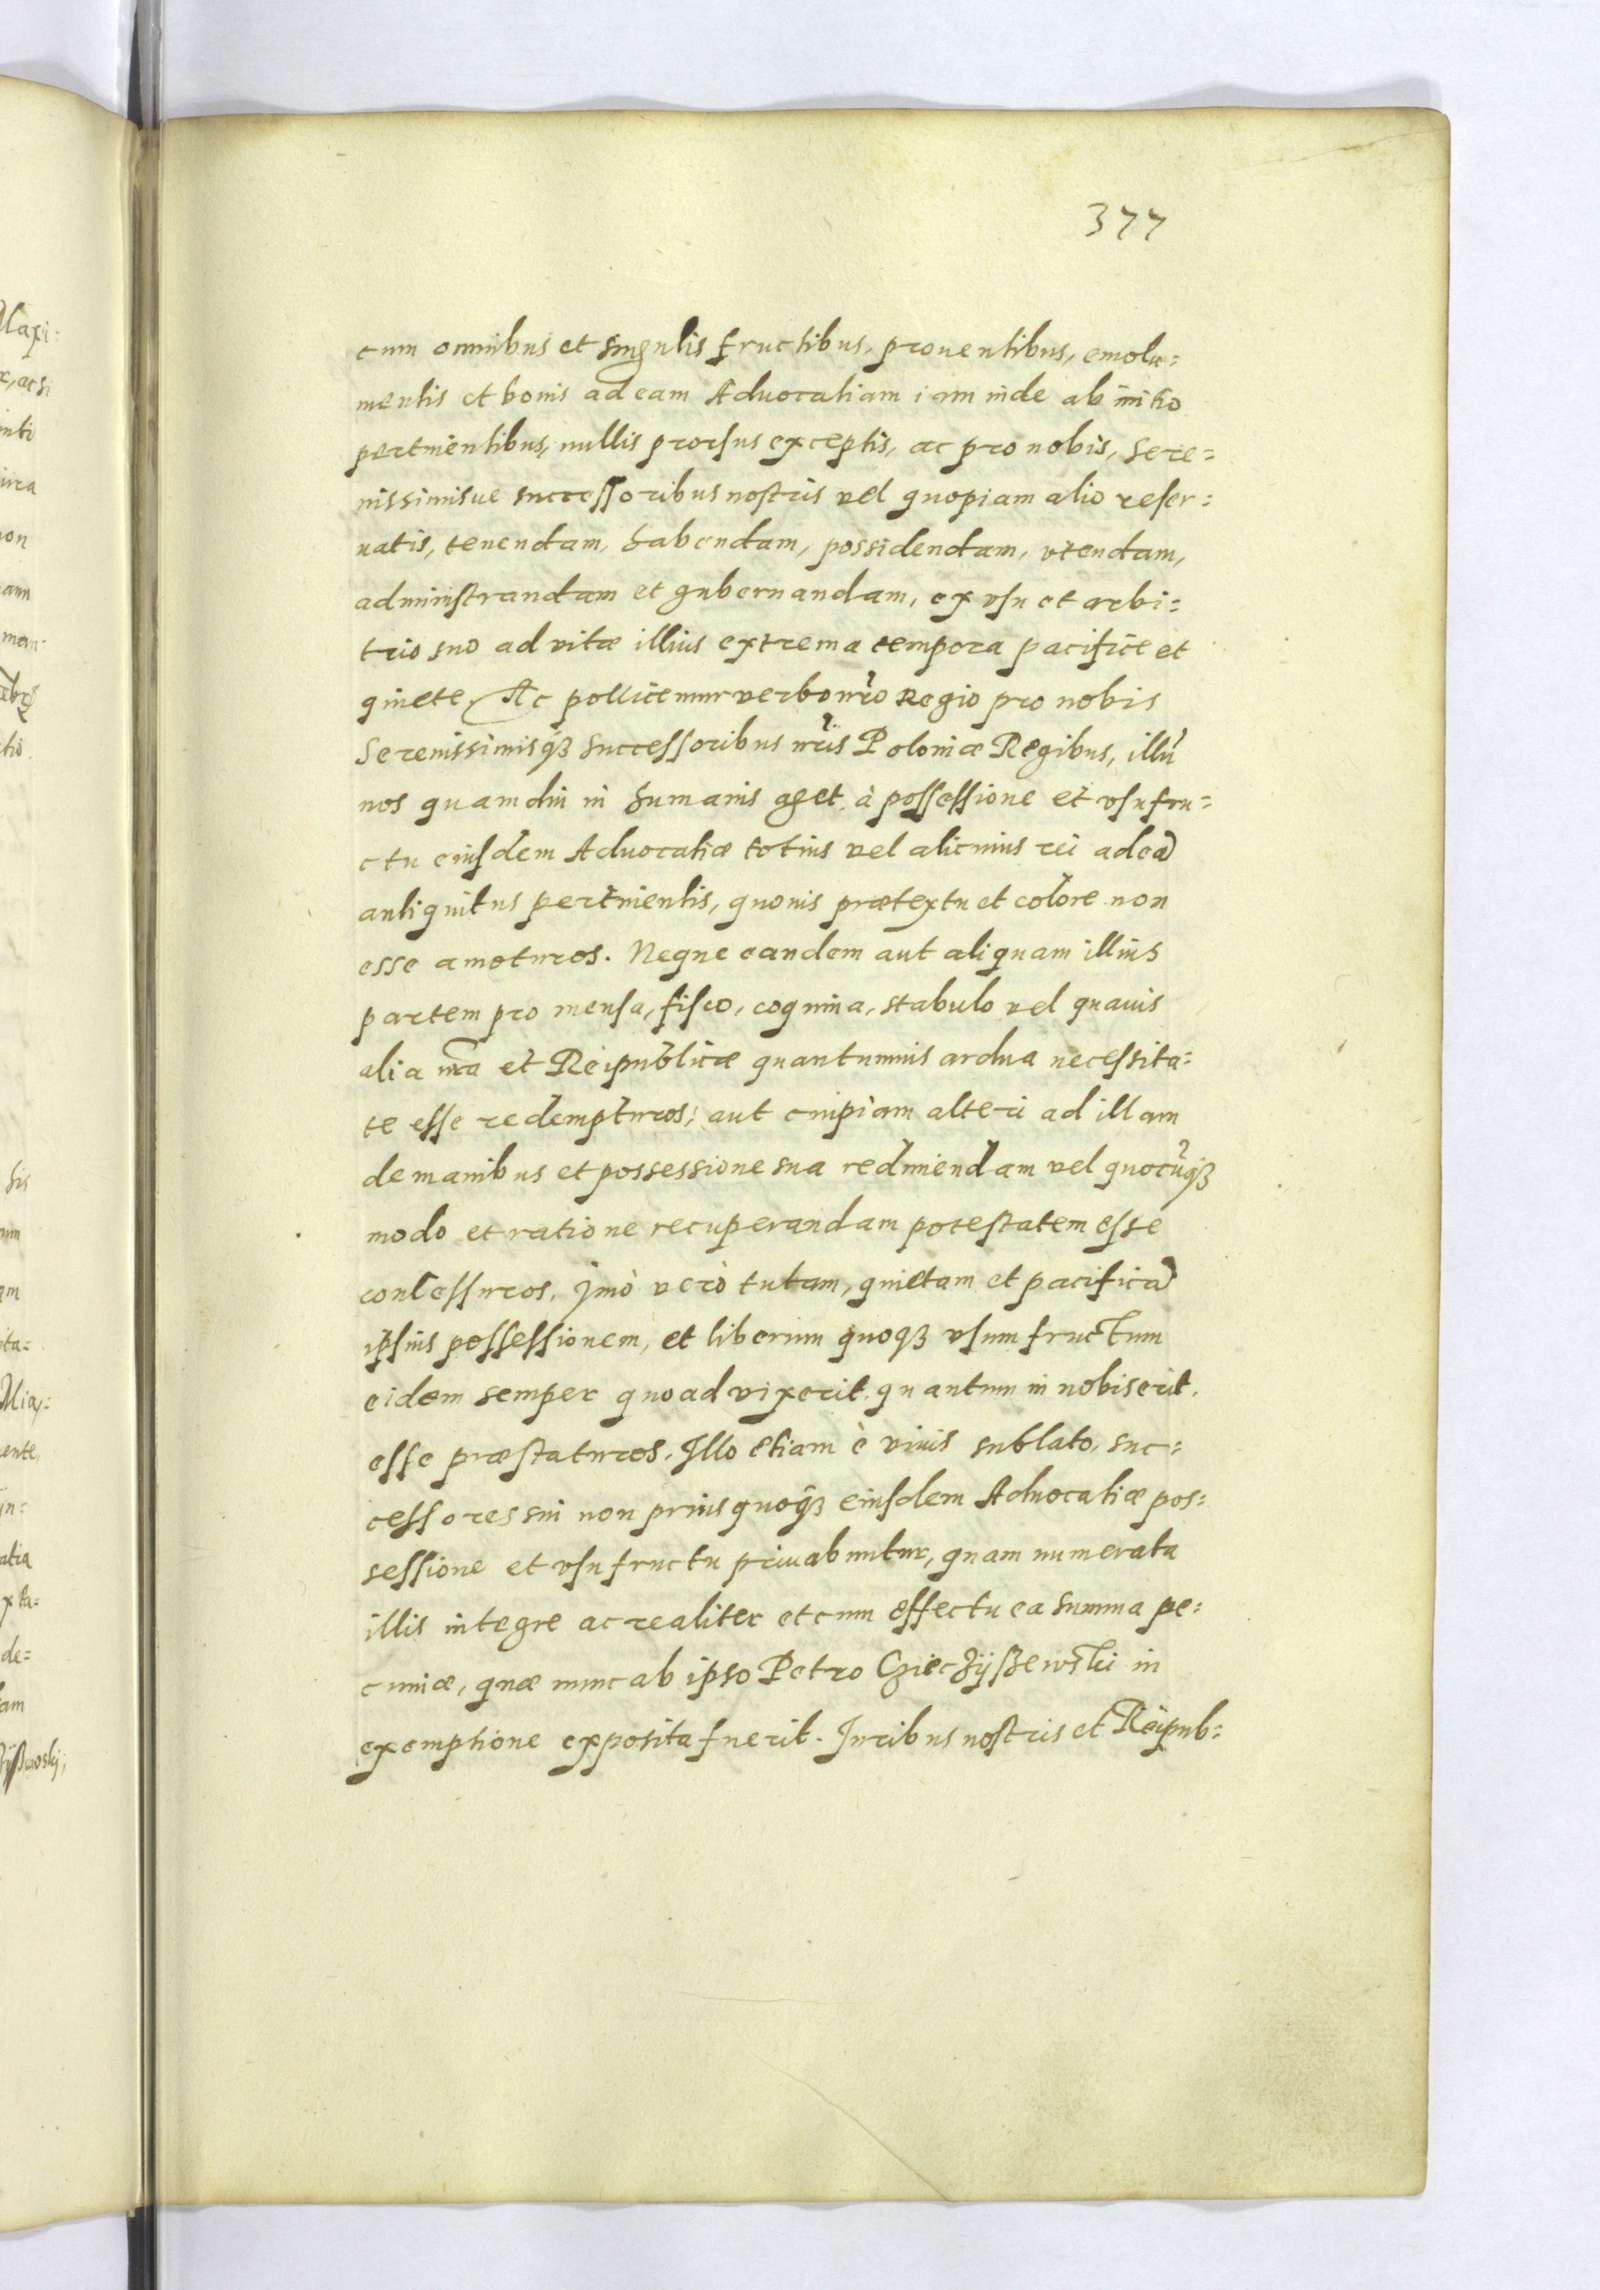 377
cum omnibus et singulis fructibus, prouentibus, emolu=
mentis et bonis ad eam Aduocatiam iam inde ab initio
pertinentibus, nullis prorsus exceptis, ac pro nobis, Sere=
nissimisue successoribus nostris vel quopiam alio reser=
uatis, tenendam, habendam, possidendam, vtendam,
administrandam et gubernandam, ex vsu et arbi=
trio suo ad vitæ illius extrema tempora pacifice et
quiete. Ac pollicemur verbo nr̃o Regio pro nobis
Serenissimisq́ꝫ successoribus nr̃is Poloniæ Regibus, illũ
nos quamdiu in humanis aget, à possessione et vsufru=
ctu eiusdem Aduocatiæ totius vel alicuius rei ad eã
antiquitus pertinentis, quouis prætextu et colore non
esse amoturos. Neque eandem aut aliquam illius
partem pro mensa, fisco, coquina, stabulo vel quauis
alia nr̃a et Reipublicæ quantumuis ardua necessita=
te esse redempturos; aut cuipiam alteri ad illam
de manibus et possessione sua redimendam vel quocũqꝫ
modo et ratione recuperandam potestatem esse
concessuros. Jmò verò tutam, quietam et pacificã
ipsius possessionem, et liberum quoqꝫ vsumfructum
eidem semper quoad vixerit, quantum in nobis erit,
esse præstaturos. Jllo etiam è viuis sublato, suc=
cessores sui non prius quoqꝫ eiusdem Aduocatiæ pos=
sessione et vsufructu priuabuntur, quam numerata
illis integre ac realiter et cum effectu ea summa pe=
cuniæ, quæ nunc ab ipso Petro Cziechÿßewski in
exemptione exposita fuerit. Juribus nostris et Reipub=